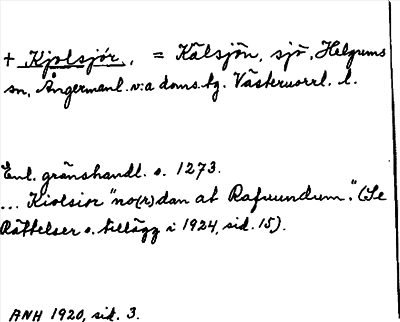 + Kjolsjór, = Kälsjön, sjö, Helgums
sn, Ångermanl. v:a doms.tg. Västernorrl. l.
Enl. gränshandl. o. 1273.
... Kiolsior "no(r)dan at Rafnundum". (Se
Rättelser o. tillägg i 1924, sid. 15).
ANH 1920, sid. 3.